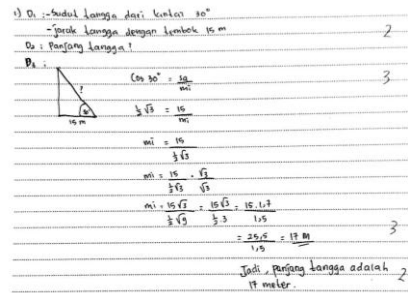 1) D1 : - Sudut tangga dari lantai 30°
- jarak tangga dengan tembok 15 m
2
D2 : Panjang tangga?
D3 :
?
30°
15 m
Cos 30° = sa/mi
3
½√3 = 15/mi
mi = 15/½√3
mi = 15/½√3 . √3/√3
mi = 15√3/½√9 = 15√3/½ 3 = 15.1,7/1,5
= 25,5/1,5 = 17 M
3
Jadi, panjang tangga adalah
17 meter.
2